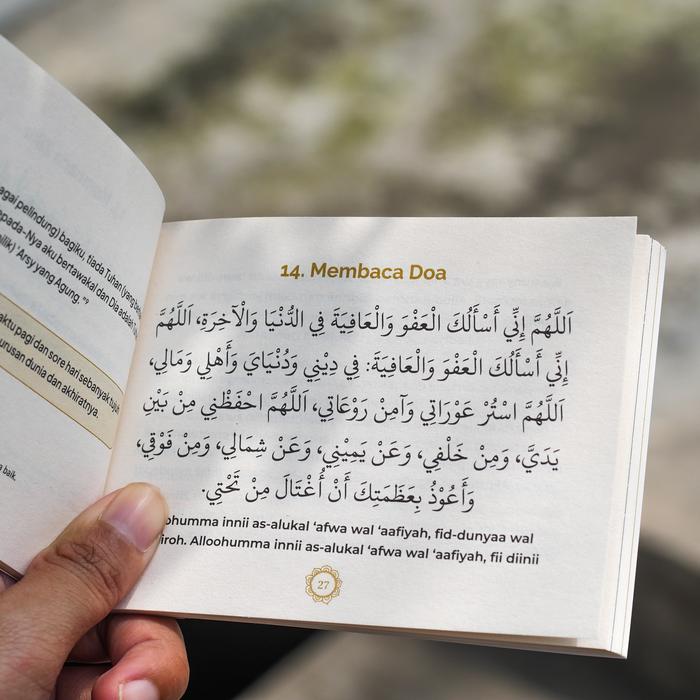 pelindung) bagiku, tiada Tuhan (yang
-Nya aku bertawakal dan Dia
'Arsy yang Agung."⁹
pagi dan sore hari sebanyak
urusan dunia dan akhiratnya.
baik.
14. Membaca Doa
اَللّٰهُمَّ إِنِّي أَسْأَلُكَ الْعَفْوَ وَالْعَافِيَةَ فِي الدُّنْيَا وَالْآخِرَةِ، اَللّٰهُمَّ
إِنِّي أَسْأَلُكَ الْعَفْوَ وَالْعَافِيَةَ: فِي دِيْنِي وَدُنْيَايَ وَأَهْلِي وَمَالِي،
اَللّٰهُمَّ اسْتُرْ عَوْرَاتِي وَآمِنْ رَوْعَاتِي، اَللّٰهُمَّ احْفَظْنِي مِنْ بَيْنِ
يَدَيَّ، وَمِنْ خَلْفِي، وَعَنْ يَمِيْنِي، وَعَنْ شِمَالِي، وَمِنْ فَوْقِي،
وَأَعُوْذُ بِعَظَمَتِكَ أَنْ أُغْتَالَ مِنْ تَحْتِي.
innii as-alukal ‘afwa wal ‘aafiyah, fid-dunyaa wal
Alloohumma innii as-alukal ‘afwa wal ‘aafiyah, fii diinii
27